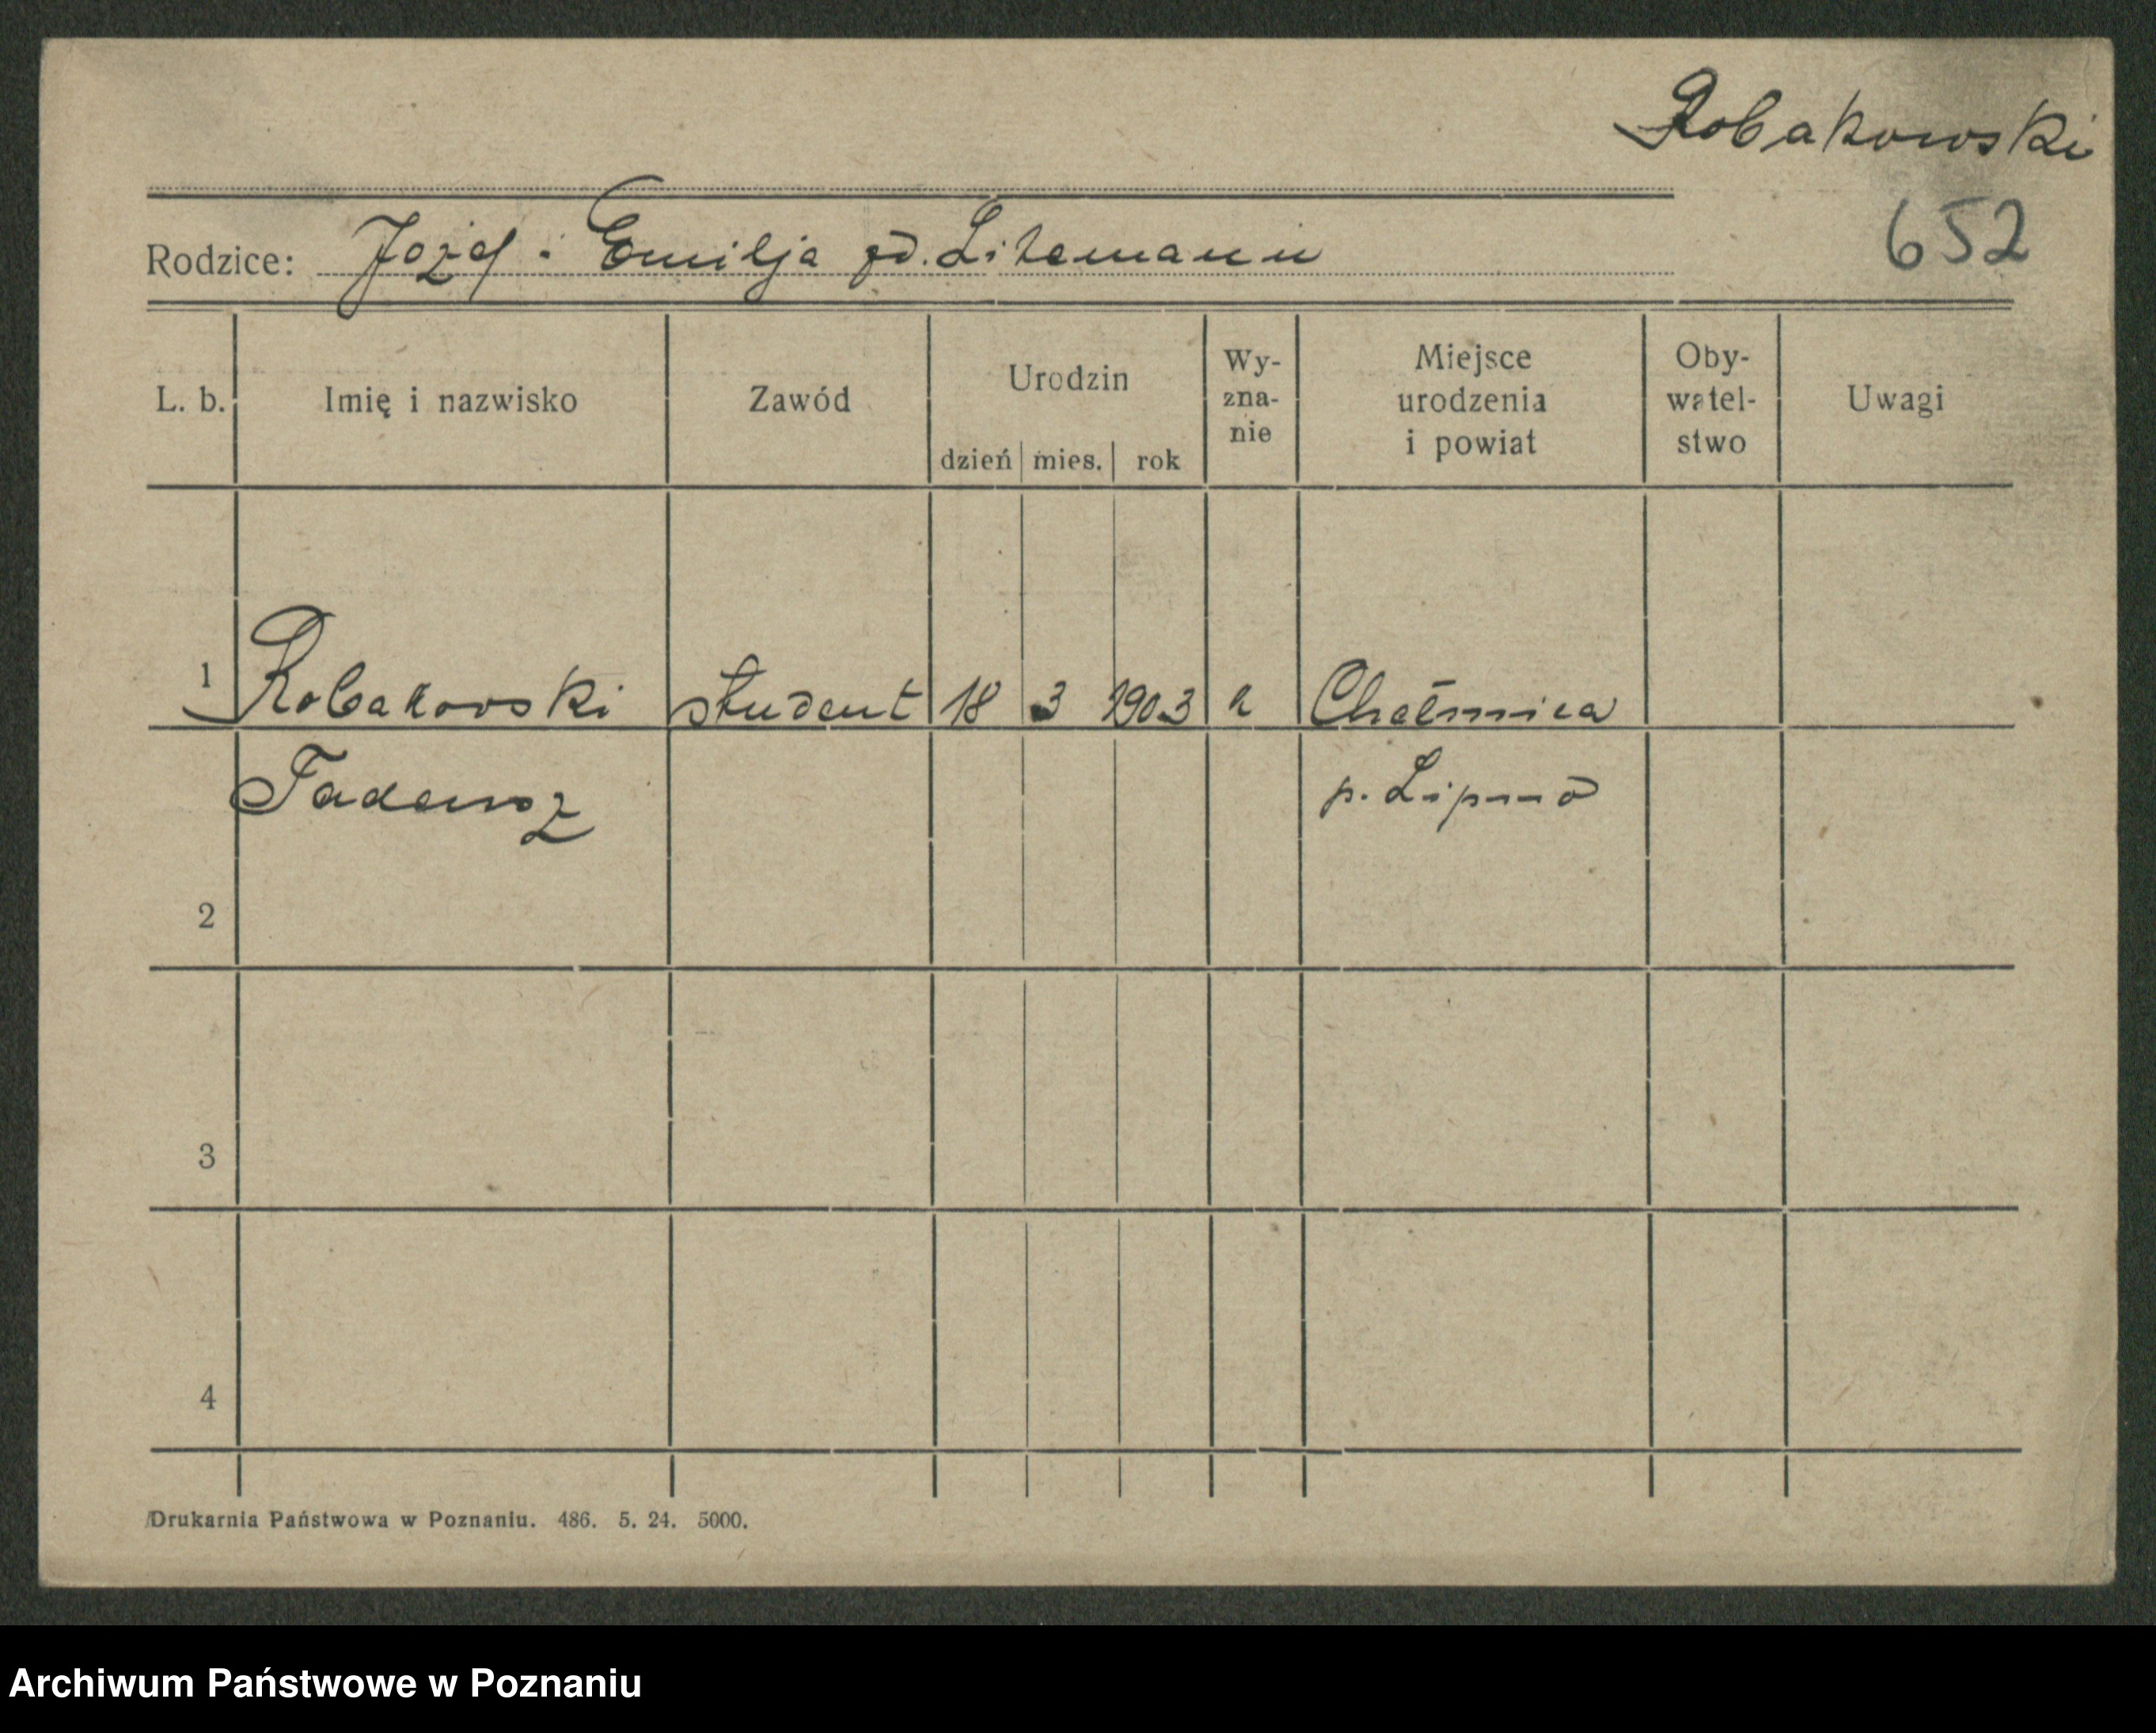 Robakowski
652
Rodzice: Józef i Emilja zd. Litemann
L. b. Imię i nazwisko Zawód Urodzin dzień mies. rok Wy-zna-nie Miejsce urodzenia i powiat Oby-watel-stwo Uwagi
1 Robakowski student 18 3 1903 k Chełmica
Tadeusz p. Lipno
2
3
4
Drukarnia Państwowa w Poznaniu. 486. 5. 24. 5000.
Archiwum Państwowe w Poznaniu